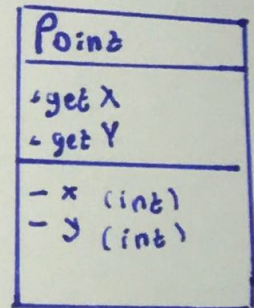 Point
+get X
+ get Y
- x (int)
- y (int)